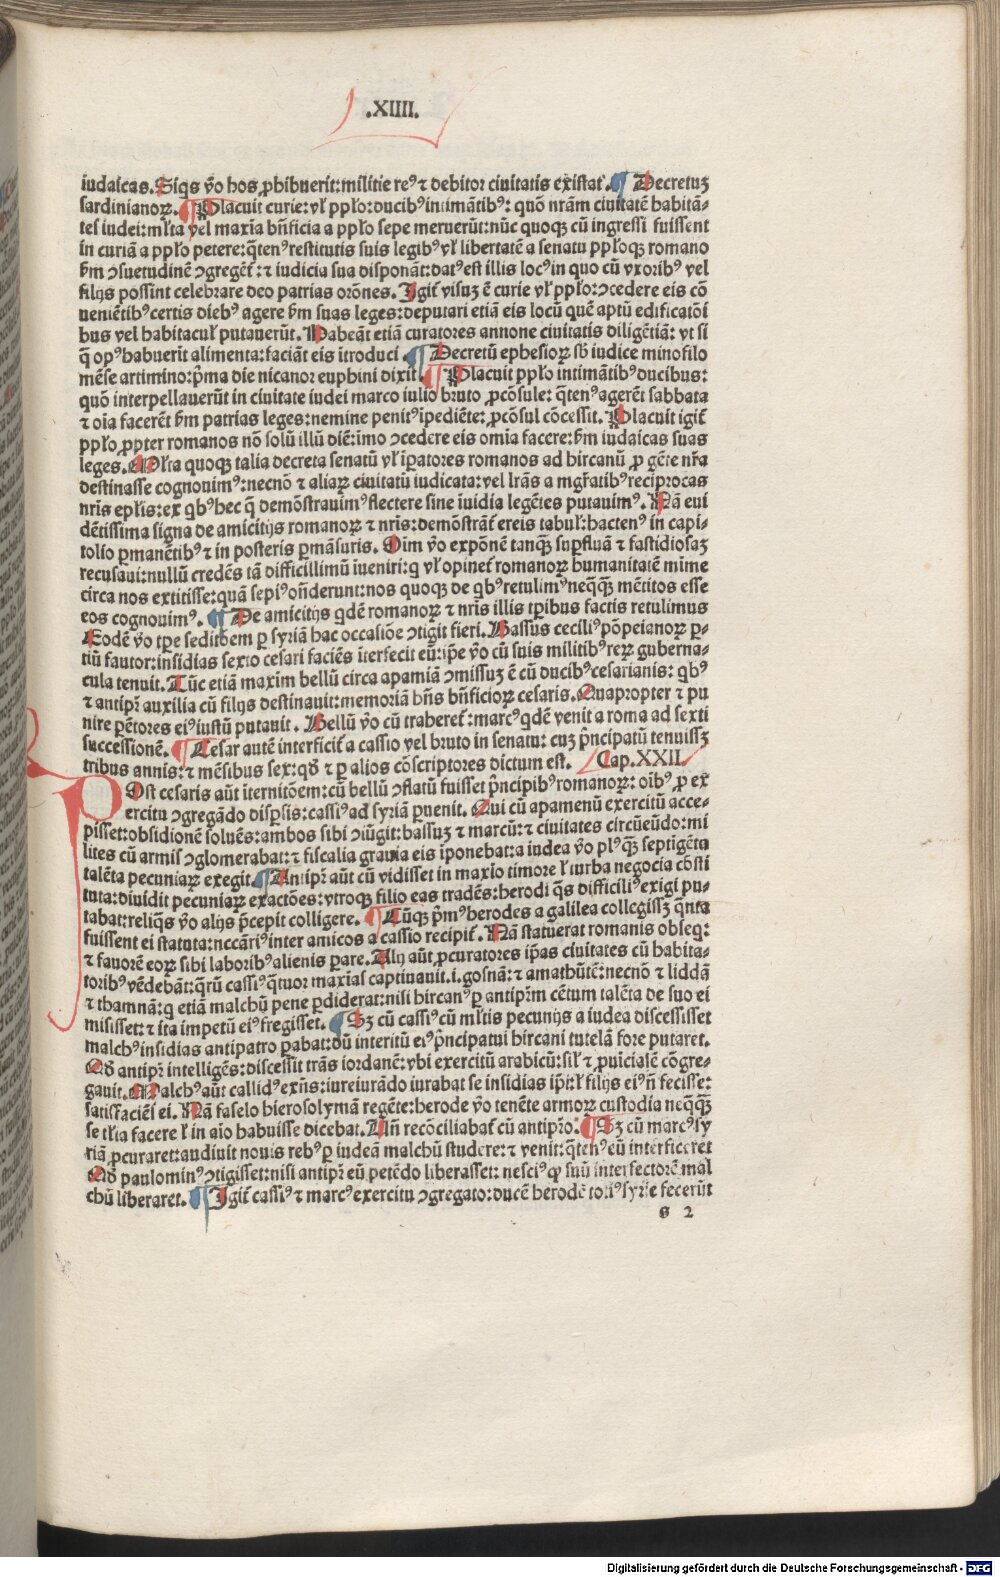 .XIIII.
iudaicas. Siqs ṽo hos ꝓhibuerit: militie reꝰ ⁊ debitor ciuitatis existat. ¶ Decretuz
sardinianoꝝ. ¶ Placuit curie: vł ppło: ducibꝰ intimãtibꝰ: quõ nrãm ciuitatẽ habitã-
tes iudei: młta vel maxia bñficia a ppło sepe meruerũt: nũc quoqꝫ cũ ingressi fuissent
in curiã a ppło petere: q̃tenꝰ restitutis suis legibꝰ vł libertatẽ a senatu ppłoqꝫ romano
ẜm ↄsuetudinẽ ↄgregẽt̃: ⁊ iudicia sua disponãt: datꝰ est illis locꝰ in quo cũ vxoribꝰ vel
filijs possint celebrare deo patrias orões. Igit̃ visuz ẽ curie vł ppło: ↄcedere eis cõ
ueniẽtibꝰ certis diebꝰ agere ẜm suas leges: deputari etiã eis locũ quẽ aptũ edificatõi
bus vel habitacuł putauerũt. Habeãt etiã curatores annone ciuitatis diligẽtiã: vt si
q̃ opꝰ habuerit alimenta: faciãt eis ĩtroduci. ¶ Decretũ ephesioꝝ sb iudice minofilo
mẽse artimino: p̃ma die nicanor euphini dixit. ¶ Placuit ppło intimãtibꝰ ducibus:
quõ interpellauerũt in ciuitate iudei marco iulio bruto ꝓcõsule: q̃tenꝰ agerẽt sabbata
⁊ oia facerẽt ẜm patrias leges: nemine penitꝰ ĩpediẽte: ꝓcõsul cõcessit. Placuit igit̃
ppło ꝓpter romanos nõ solũ illũ diẽ: imo ↄcedere eis omia facere: ẜm iudaicas suas
leges. Młta quoqꝫ talia decreta senatũ vł ip̃atores romanos ad hircanũ ꝓ gẽte nr̃a
destinasse cognouimꝰ: necnõ ⁊ aliaꝝ ciuitatũ iudicata: vel lrãs a mgr̃atibꝰ reciprocas
nris epłis: ex qbꝰ hec q̃ demõstrauimꝰ flectere sine ĩuidia legẽtes putauimꝰ. Nã eui
dẽtissima signa de amicitijs romanoꝝ ⁊ nris: demõstrãt̃ ereis tabuł: hactenꝰ in capi-
tolio ꝑmanẽtibꝰ ⁊ in posteris ꝑmãsuris. Oim ṽo expõnẽ tanqꝫ̃ suꝑfluã ⁊ fastidiosaz
recusaui: nullũ credẽs tã difficillimũ ĩueniri: q vł opinet̃ romanoꝝ humanitatẽ mime
circa nos extitisse: quã sepiꝰ oñderunt: nos quoqꝫ de qbꝰ retulimꝰ neqꝫ̃qꝫ̃ mẽtitos esse
eos cognouimꝰ. ¶ De amicitijs qdẽ romanoꝝ ⁊ nris illis tꝑibus factis retulimus
Eodẽ ṽo tꝑe seditõem ꝑ syriã hac occasiõe ↄtigit fieri. Bassus ceciliꝰ põpeianoꝝ ꝑ-
tiũ fautor: insidias sexto cesari faciẽs ĩterfecit eũ: ip̃e ṽo cũ suis militibꝰ reꝝ guberna-
cula tenuit. Tũc etiã maxim bellũ circa apamiã ↄmissuz ẽ cũ ducibꝰ cesarianis: qbꝰ
⁊ antipr̃ auxilia cũ filijs destinauit: memoriã bñs bñficioꝝ cesaris. Quapropter ⁊ pu
nire ꝑẽtores eiꝰ iustũ putauit. Bellũ ṽo cũ traheret̃: marcꝰ qdẽ venit a roma ad sexti
successionẽ. ¶ Cesar autẽ interficit̃ a cassio vel bruto in senatu: cuz p̃ncipatũ tenuissꝫ
tribus annis: ⁊ mẽsibus sex: qð ⁊ ꝑ alios cõscriptores dictum est. Cap. XXII.
POst cesaris aũt ĩternitõem: cũ bellũ ↄflatũ fuisset p̃ncipibꝰ romanoꝝ: oĩbꝰ ꝓ ex
ercitu ↄgregãdo disꝑsis: cassiꝰ ad syriã ꝑuenit. Qui cũ apamenũ exercitũ acce-
pisset: obsidionẽ soluẽs: ambos sibi ↄiũgit: bassuz ⁊ marcũ: ⁊ ciuitates circũeũdo: mi
lites cũ armis ↄglomerabat: ⁊ fiscalia grauia eis ĩponebat: a iudea ṽo plꝰ qꝫ septigẽta
talẽta pecuniaꝝ exegit. ¶ Antipr̃ aũt cũ vidisset in maxĩo timore ł turba negocia cõsti
tuta: diuidit pecuniaꝝ exactões: vtroqꝫ filio eas tradẽs: herodi q̃s difficiliꝰ exigi pu-
tabat: reliqs ṽo alijs p̃cepit colligere. ¶ Cũqꝫ p̃mꝰ herodes a galilea collegissꝫ q̃nta
fuissent ei statuta: neccãriꝰ inter amicos a cassio recipit̃. Nã statuerat romanis obseq:
⁊ fauorẽ eoꝝ sibi laboribꝰ alienis ꝑare. Alij aũt ꝓcuratores ip̃as ciuitates cũ habita-
toribꝰ vẽdebãt: q̃rũ cassiꝰ q̃tuor maxĩas captiuauit. i. gosnã: ⁊ amathũtẽ: necnõ ⁊ liddã
⁊ thamnã: q etiã malchũ pene ꝑdiderat: nisi hircanꝰ ꝑ antiprm̃ cẽtum talẽta de suo ei
misisset: ⁊ ita impetũ eiꝰ fregisset. ¶ Sꝫ cũ cassiꝰ cũ młtis pecunijs a iudea discessisset
malchꝰ insidias antipatro ꝑabat: dũ interitũ eiꝰ p̃ncipatui hircani tutelã fore putaret.
Qð antipr̃ intelligẽs: discessit trãs iordanẽ: vbi exercitũ arabicũ: sił ⁊ ꝓuĩciasẽ cõgre-
gauit. Malchꝰ aũt callidꝰ exñs: iureiurãdo iurabat se insidias ip̃i: ł filijs eiꝰ ñ fecisse:
satisfaciẽs ei. Nã faselo hierosolymã regẽte: herode ṽo tenẽte armoꝝ custodia neqꝫ̃qꝫ̃
se tłia facere ł in aĩo habuisse dicebat. Tñ recõciliabat̃ cũ antipr̃o. ¶ Sꝫ cũ marcꝰ sy
riã ꝓcuraret: audiuit nouis rebꝰ ꝑ iudeã malchũ studere: ⁊ venit: q̃tenꝰ eũ interficeret
Qð paulominꝰ ↄtigisset: nisi antipr̃ eũ petẽdo liberasset: nesciꝰ ꝙ suũ interfectorẽ mal
chũ liberaret. ¶ Igit̃ cassiꝰ ⁊ marcꝰ exercitu ↄgregato: ducẽ herodẽ totiꝰ syrie fecerũt
G 2
Digitalisierung gefördert durch die Deutsche Forschungsgemeinschaft - DFG